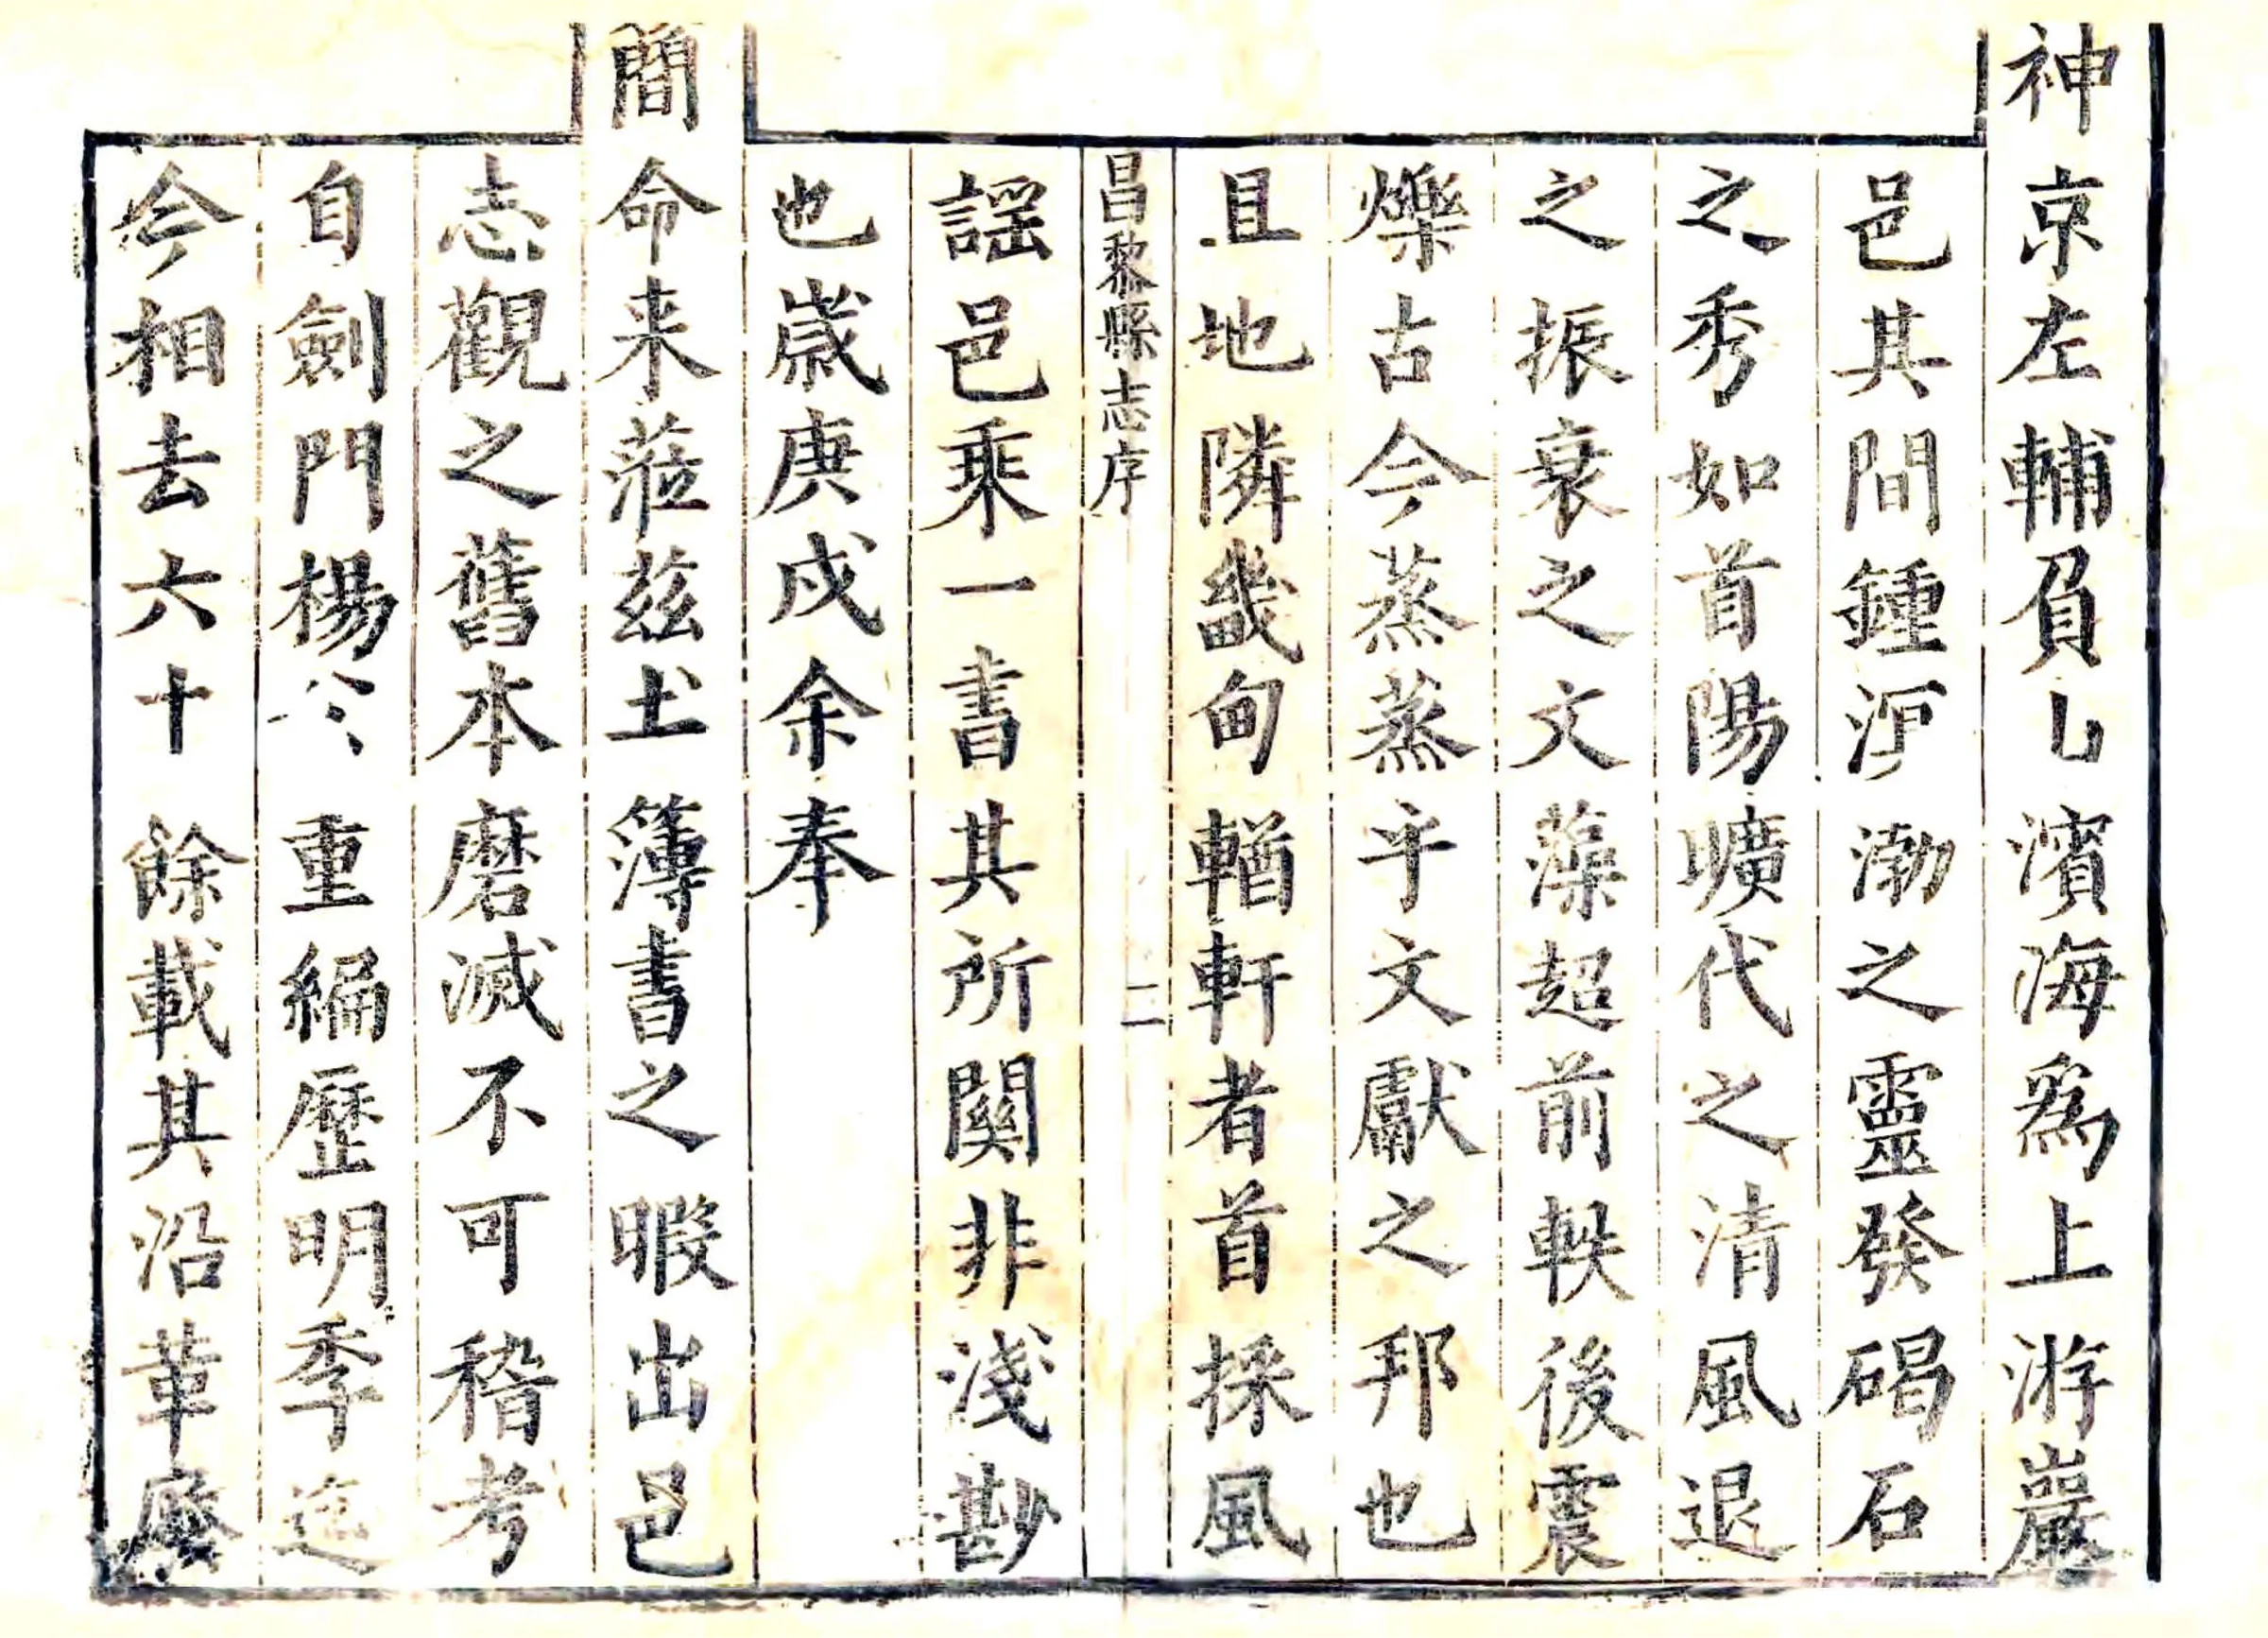 神京左輔負山濱海爲上游巖
邑其間鍾溟渤之靈發碣石
之秀如首陽曠代之清風退
之振衰之文藻超前軼後震
爍古今蒸蒸乎文獻之邦也
且地隣畿甸輶軒者首採風
昌黎縣志序 二
謡邑乘一書其所關非淺尠
也歲庚戌余奉
簡命来蒞茲土簿書之暇出邑
志觀之舊本磨滅不可稽考
自劍門楊公重編歷明季迄
今相去六十餘載其沿革廢